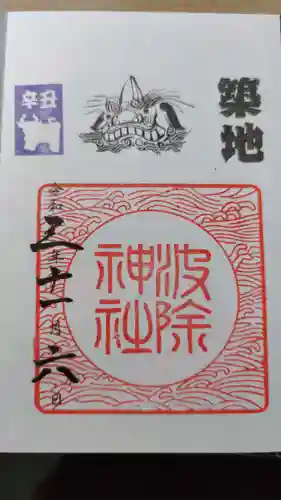 築地
辛丑
波除
神社
令和三年十一月六日